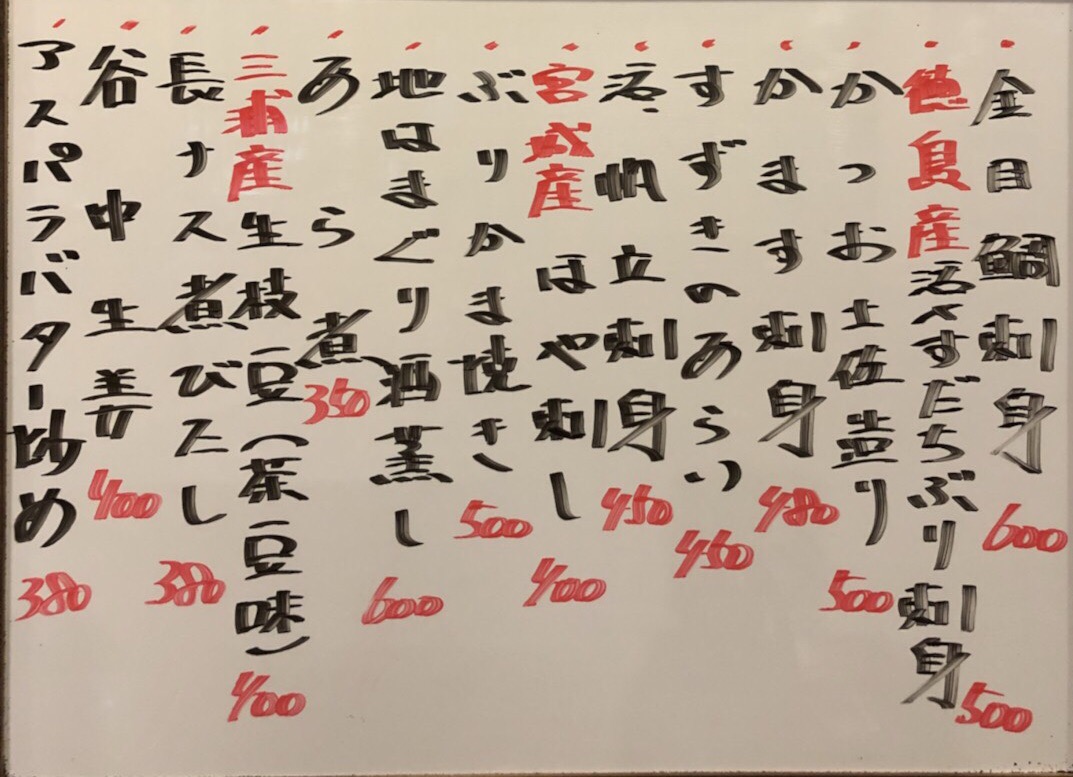 金目鯛刺身 600
徳島産活〆すだちぶり刺身 500
かつお土佐造り 500
かます刺身 480
すずきのあらい 450
活帆立刺身 450
宮城産ほや刺し 400
ぶりかま焼き 500
地はまぐり酒蒸し 600
あら煮 350
三浦産生枝豆(茶豆味) 400
長ナス煮びたし 380
谷中生姜 400
アスパラバター炒め 380